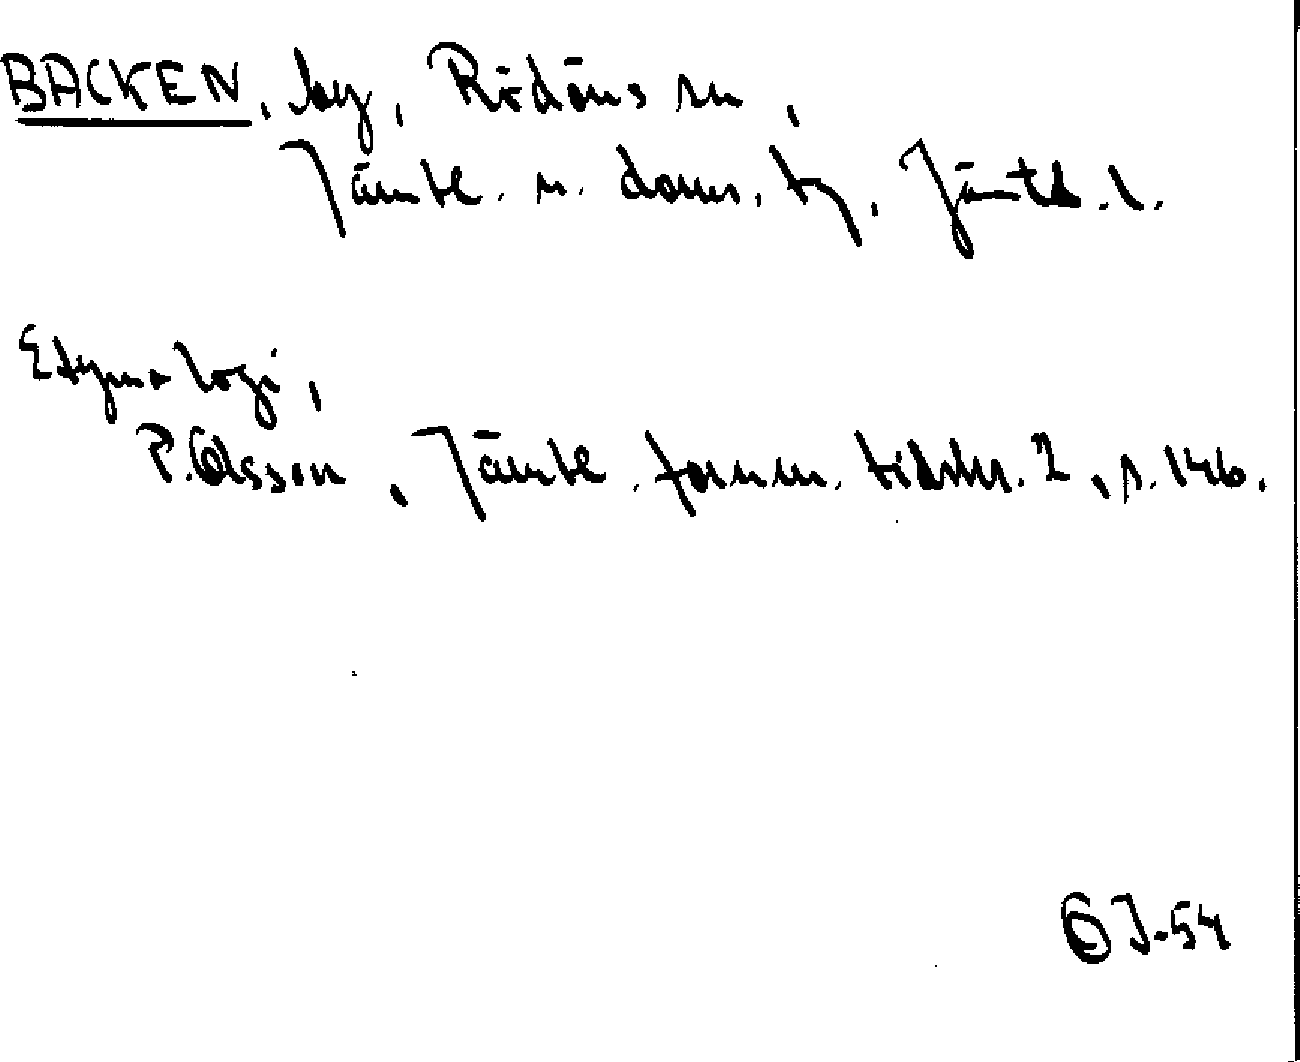 BACKEN, by, Rödöns sn,
Jämtl. n. doms. tj, Jämtl. l.
Etymologi,
P. Olsson, Jämtl. fornm. tidskr. 2, s. 146.
J-54